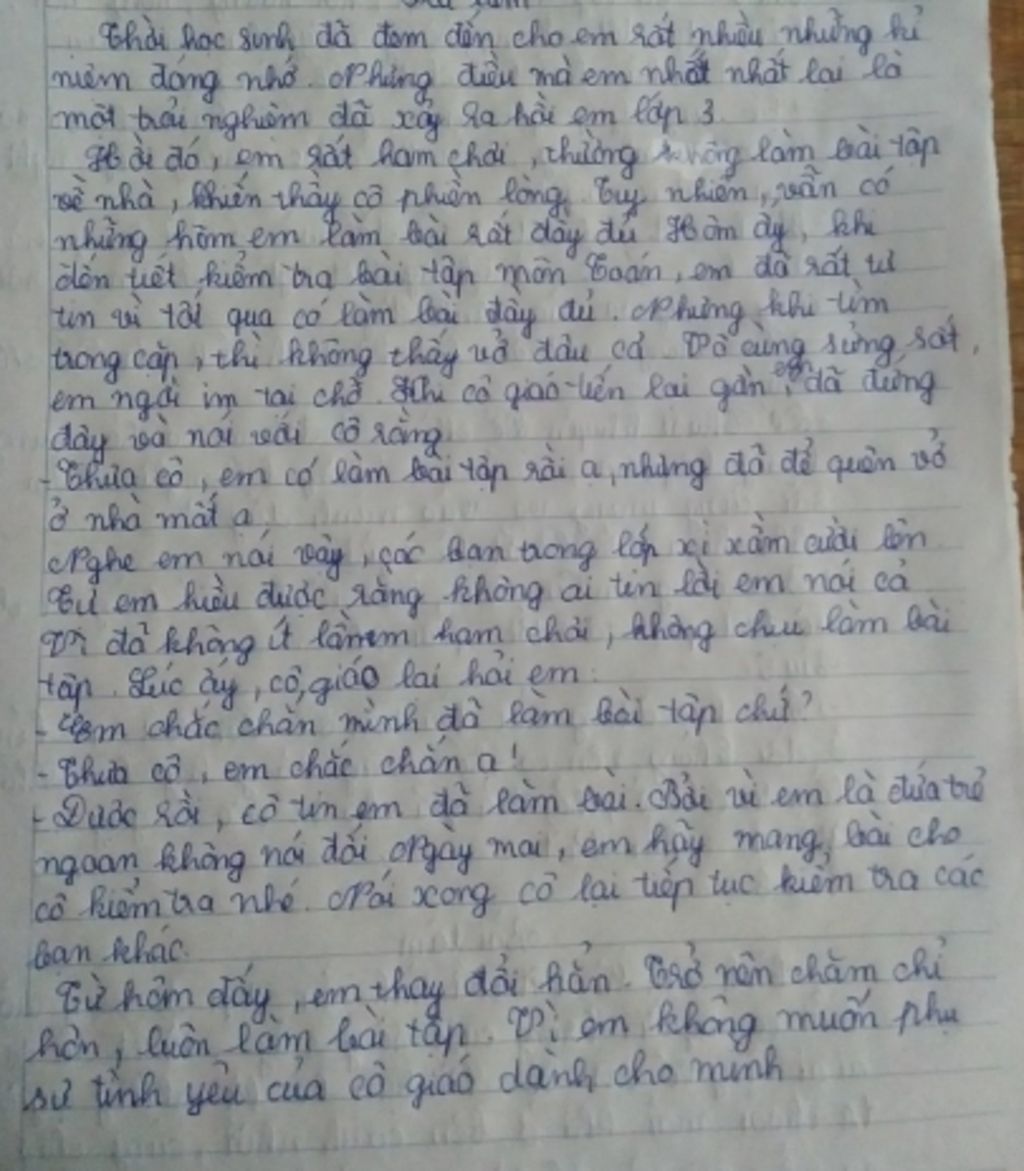 Thời học sinh đã đem đến cho em rất nhiều những kỉ
niệm đáng nhớ. Nhưng điều mà em nhất nhất lại là
một trải nghiệm đã xảy ra hồi em lớp 3
Hồi đó, em rất ham chơi, thường không làm bài tập
về nhà, khiến thầy cô phiền lòng. Tuy nhiên, vẫn có
những hôm em làm bài rất đầy đủ Hôm ấy, khi
đến tiết kiểm tra bài tập môn Toán, em đã rất tự
tin vì tối qua có làm bài đầy đủ. Nhưng khi tìm
trong cặp, thì không thấy vở đâu cả Vô cùng sửng sốt,
em ngồi im tại chỗ. Khi cô giáo tiến lại gần, em đã đứng
dậy và nói với cô rằng
- Thưa cô, em có làm bài tập rồi ạ, nhưng đã để quên vở
ở nhà mất ạ
Nghe em nói vậy, các bạn trong lớp xì xầm cười lên
Tự em hiểu được rằng không ai tin lời em nói cả
Vì đã không ít lần em ham chơi, không chịu làm bài
tập. Lúc ấy, cô giáo lại hỏi em:
- Em chắc chắn mình đã làm bài tập chứ?
- Thưa cô, em chắc chắn ạ!
- Được rồi, cô tin em đã làm bài. Bởi vì em là đứa trẻ
ngoan, không nói dối Ngày mai, em hãy mang bài cho
cô kiểm tra nhé. Nói xong cô lại tiếp tục kiểm tra các
bạn khác.
Từ hôm đấy, em thay đổi hẳn. Trở nên chăm chỉ
hơn, luôn làm bài tập. Vì em không muốn phụ
sự tình yêu của cô giáo dành cho mình